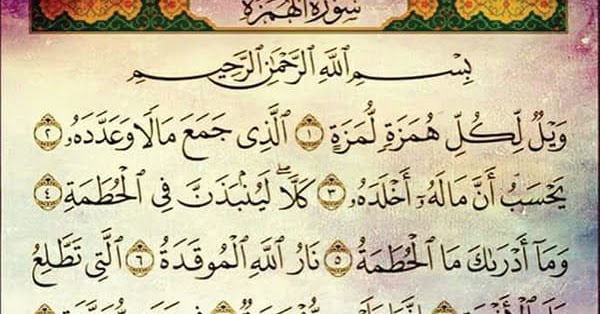 سُورَةُ الهُمَزَةِ
بِسْمِ ٱللَّهِ ٱلرَّحْمَٰنِ ٱلرَّحِيمِ
وَيْلٌ لِّكُلِّ هُمَزَةٍ لُّمَزَةٍ ١ ٱلَّذِى جَمَعَ مَالًا وَعَدَّدَهُۥ ٢
يَحْسَبُ أَنَّ مَالَهُۥٓ أَخْلَدَهُۥ ٣ كَلَّا ۖ لَيُنۢبَذَنَّ فِى ٱلْحُطَمَةِ ٤
وَمَآ أَدْرَىٰكَ مَا ٱلْحُطَمَةُ ٥ نَارُ ٱللَّهِ ٱلْمُوقَدَةُ ٦ ٱلَّتِى تَطَّلِعُ